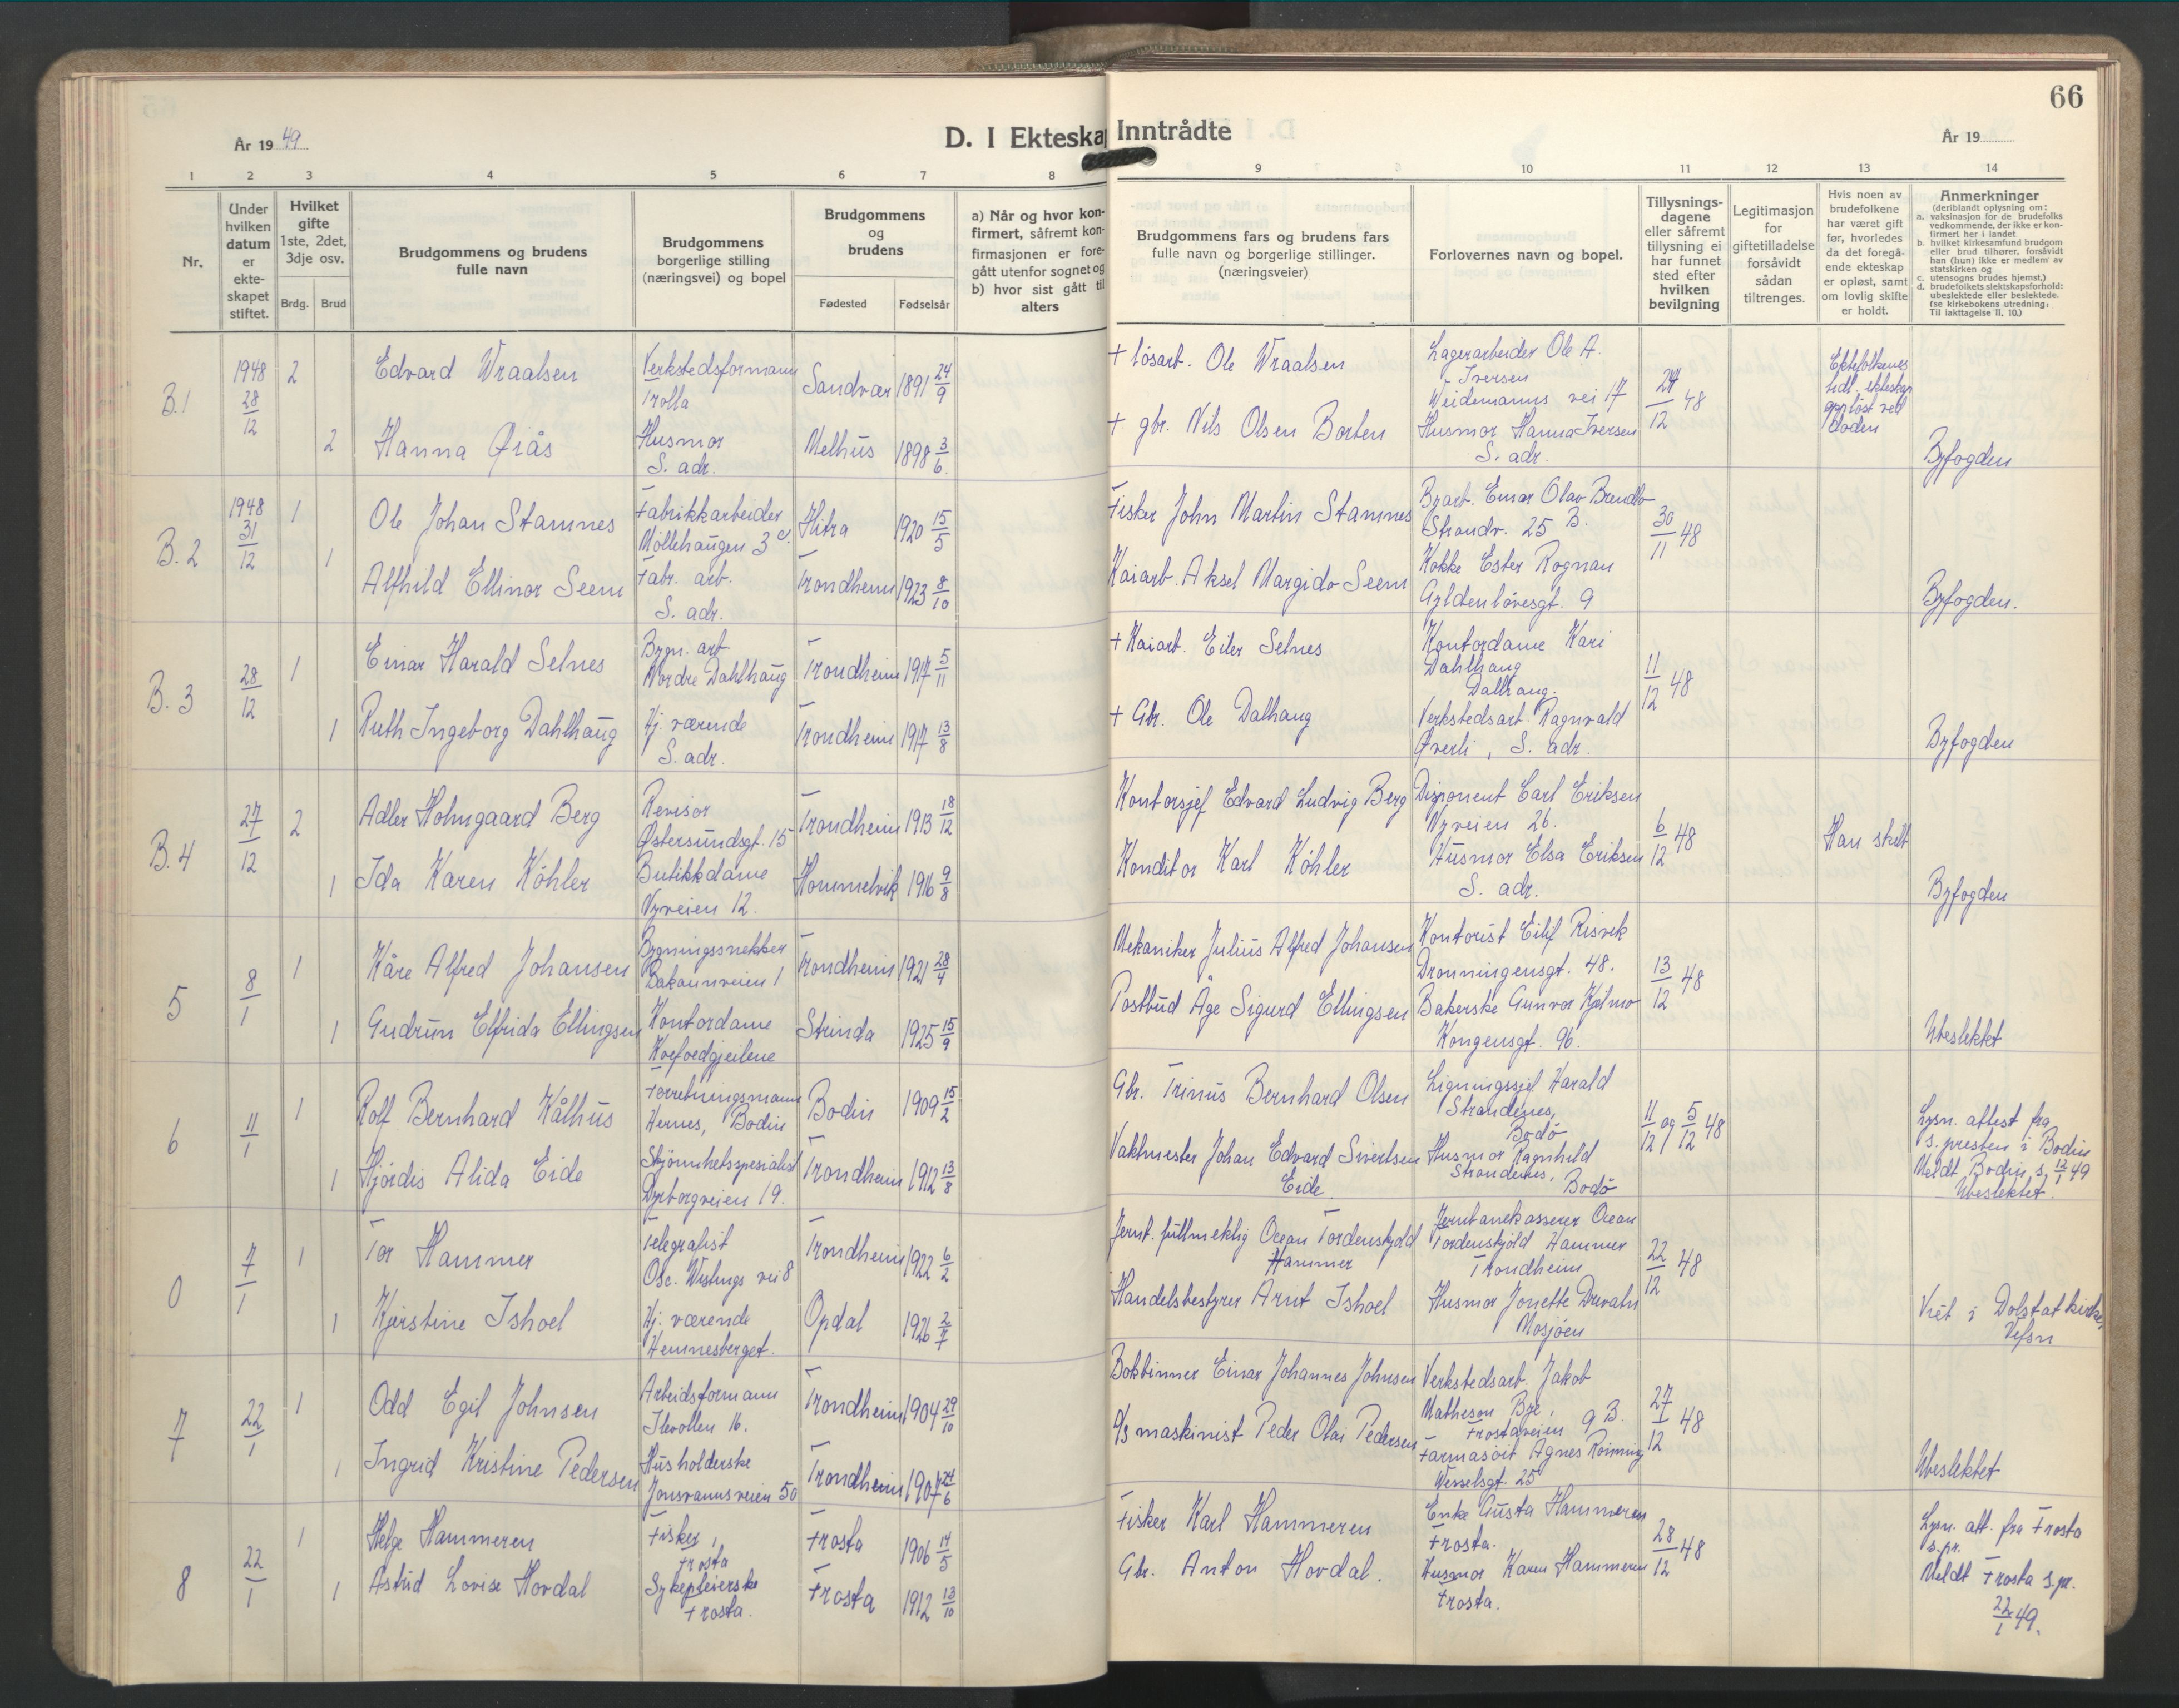 66
År 1949
D. I Ekteskap
Inntrådte
År 19
1 2 3 4 5 6 7 8
9 10 11 12 13 14
Nr.
Under
hvilken
datum
er
ekte-
skapet
stiftet.
Hvilket
gifte
1ste, 2det,
3dje osv.
Brdg. Brud
Brudgommens og brudens
fulle navn
Brudgommens
borgerlige stilling
(næringsvei) og bopel
Brudgommens
og
brudens
Fødested Fødselsår
a) Når og hvor kon-
firmert, såfremt kon-
firmasjonen er fore-
gått utenfor sognet og
b) hvor sist gått til
alters
Brudgommens fars og brudens fars
fulle navn og borgerlige stillinger.
(næringsveier)
Forlovernes navn og bopel.
Tillysnings-
dagene
eller såfremt
tillysning ei
har funnet
sted efter
hvilken
bevilgning
Legitimasjon
for
giftetilladelse
forsåvidt
sådan
tiltrenges.
Hvis noen av
brudefolkene
har været gift
før, hvorledes
da det foregå-
ende ekteskap
er opløst, samt
om lovlig skifte
er holdt.
Anmerkninger
(deriblandt oplysning om:
a. vaksinasjon for de brudefolks
vedkommende, der ikke er kon-
firmert her i landet
b. hvilket kirkesamfund brudgom
eller brud tilhører, forsåvidt
han (hun) ikke er medlem av
statskirken og
c. utensogns brudes hjemst.)
d. brudefolkets slektskapsforhold:
ubeslektede eller beslektede.
(se kirkebokens utredning:
Til iakttagelse II. 10.)
B.1
1948
28/12
2
Edvard Wraalsen
Verkstedsformann
Trolla
Sandvær 1891 24/9
2
Hanna Øiås
Husmor
S. adr.
Melhus 1898 3/6
+ løsarb. Ole Wraalsen
+ gbr. Nils Olsen Borten
Lagerarbeider Ole A.
Iversen
Weidemanns vei 17
Husmor Hanna Iversen
S. adr.
24/12 48
Ektefolkenes
tidl. ekteskap
oppløst ved
døden
Byfogden
B.2
1948
31/12
1
Ole Johan Stamnes
Fabrikkarbeider
Møllehaugen 3 c.
Hitra 1920 15/5
1
Alfhild Ellinor Seem
Fabr. arb.
S. adr.
Trondheim 1923 8/10
Fisker John Martin Stamnes
Kaiarb. Aksel Margido Seem
Byarb. Einar Olav Brendb
Strandv. 25 B.
Kokke Ester Rognan
Gyldenløvesgt. 9
30/11 48
Byfogden.
B.3
28/12
1
Einar Harald Selnes
Bygn. arb
Nordre Dahlhaug
Trondheim 1917 5/11
1
Ruth Ingeborg Dahlhaug
Hj. værende
S. adr.
Trondheim 1917 13/8
+ Kaiarb. Eiler Selnes
+ Gbr. Ole Dalhaug
Kontordame Kari
Dahlhaug
Dalhaug.
Verkstedsarb. Ragnvald
Øverli, S. adr.
11/12 48
Byfogden
B.4
27/12
2
Adler Holmgaard Berg
Revisor
Østersundsgt. 15
Trondheim 1913 18/12
1
Ida Karen Köhler
Butikkdame
Nyveien 12.
Hommelvik 1916 9/8
Kontorsjef Edvard Ludvig Berg
Konditor Karl Köhler
Disponent Carl Eriksen
Nyveien 26.
Husmor Elsa Eriksen
S. adr.
6/12 48
Han skilt
Byfogden
5
8/1
1
Kåre Alfred Johansen
Bygningssnekker
Bakaunveien 1
Trondheim 1921 28/4
1
Gudrun Elfrida Ellingsen
Kontordame
Koefoedgjeilene
Strinda 1925 15/9
Mekaniker Julius Alfred Johansen
Postbud Åge Sigurd Ellingsen
Kontorist Eilif Risvik
Dronningensgt. 48.
Bakerske Gunvor Kjelmo
Kongensgt. 96.
13/12 48
Ubeslektet
6
11/1
1
Rolf Bernhard Kålhus
Forretningsmann
Hernes, Bodin
Bodin 1909 15/2
1
Hjørdis Alida Eide
Skjønnhetsspesialist
Dyrborgveien 19.
Trondheim 1912 13/8
Gbr. Trinus Bernhard Olsen
Vaktmester Johan Edvard Sivertsen
Eide
Ligningssjef Harald
Strandenes,
Bodø
Husmor Ragnhild
Strandenes, Bodø
11/12 og 5/12 48
Lysn. attest fra
s. presten i Bodin
Meldt Bodin s. 12/1 49
Ubeslektet.
0
7/1
1
Tor Hammer
Telegrafist
Osc. Wistings vei 8
Trondheim 1922 6/2
1
Kjerstine Ishoel
Hj. værende
Hemnesberget.
Opdal 1926 2/7
Jernb. fullmektig Ocean Tordenskjold
Hammer
Handelsbestyrer Arnt Ishoel
Jernbanekasserer Ocean
Tordenskjold Hammer
Trondheim
Husmor Jonette Drevatn
Mosjøen
22/12 48
Viet i Dolstat kirke,
Vefsn
7
22/1
1
Odd Egil Johnsen
Arbeidsformann
Ilevollen 16.
Trondheim 1904 29/10
1
Ingrid Kristine Pedersen
Husholderske
Jonsvannsveien 50
Trondheim 1907 24/6
Bokbinner Einar Johannes Johnsen
D/s maskinist Peder Olai Pedersen
Verkstedsarb. Jakob
Matheson Bye,
Frostaveien 9 B.
Farmasøit Agnes Rønning
Wesselsgt. 25
27/12 48
Ubeslektet
8
22/1
1
Helge Hammeren
Fisker,
Frosta
Frosta 1906 14/5
1
Astrid Lovise Hovdal
Sykepleierske
Frosta.
Frosta 1912 13/10
Fisker Karl Hammeren
Gbr. Anton Hovdal.
Enke Gusta Hammeren
Frosta.
Husmor Karen Hammeren
Frosta.
28/12 48
Lysn. att. fra Frosta
s.pr.
Meldt Frosta s.pr.
22/1 49.